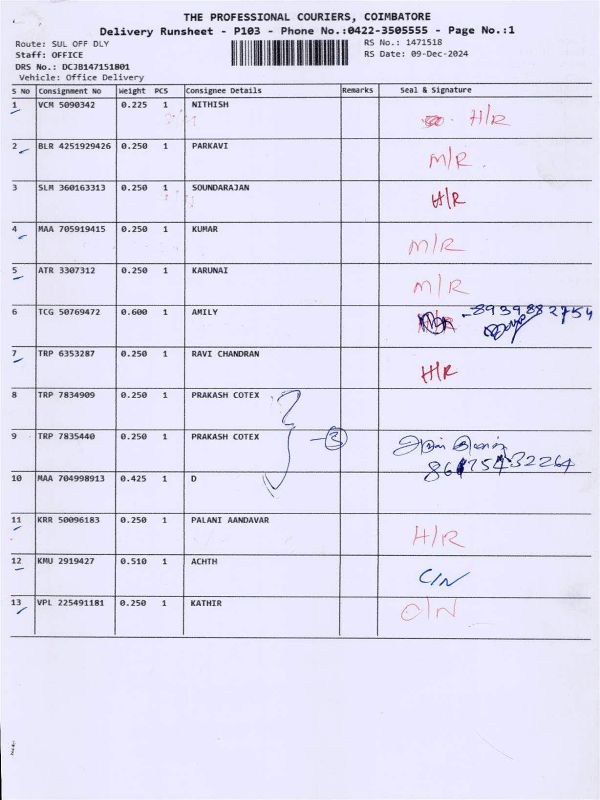 THE PROFESSIONAL COURIERS, COIMBATORE
Delivery Runsheet - P103 - Phone No.:0422-3505555 - Page No.:1
Route: SUL OFF DLY RS No.: 1471518
Staff: OFFICE RS Date: 09-Dec-2024
DRS No.: DCJB147151801
Vehicle: Office Delivery
S No Consignment No Weight PCS Consignee Details Remarks Seal & Signature
1 VCM 5090342 0.225 1 NITHISH H/R
2 BLR 4251929426 0.250 1 PARKAVI M/R
3 SLM 360163313 0.250 1 SOUNDARAJAN H/R
4 MAA 705919415 0.250 1 KUMAR M/R
5 ATR 3307312 0.250 1 KARUNAI M/R
6 TCG 50769472 0.600 1 AMILY 8939882754
7 TRP 6353287 0.250 1 RAVI CHANDRAN H/R
8 TRP 7834909 0.250 1 PRAKASH COTEX
9 TRP 7835440 0.250 1 PRAKASH COTEX 3
10 MAA 704998913 0.425 1 D
11 KRR 50096183 0.250 1 PALANI AANDAVAR H/R
12 KMU 2919427 0.510 1 ACHTH C/N
13 VPL 225491181 0.250 1 KATHIR C/N